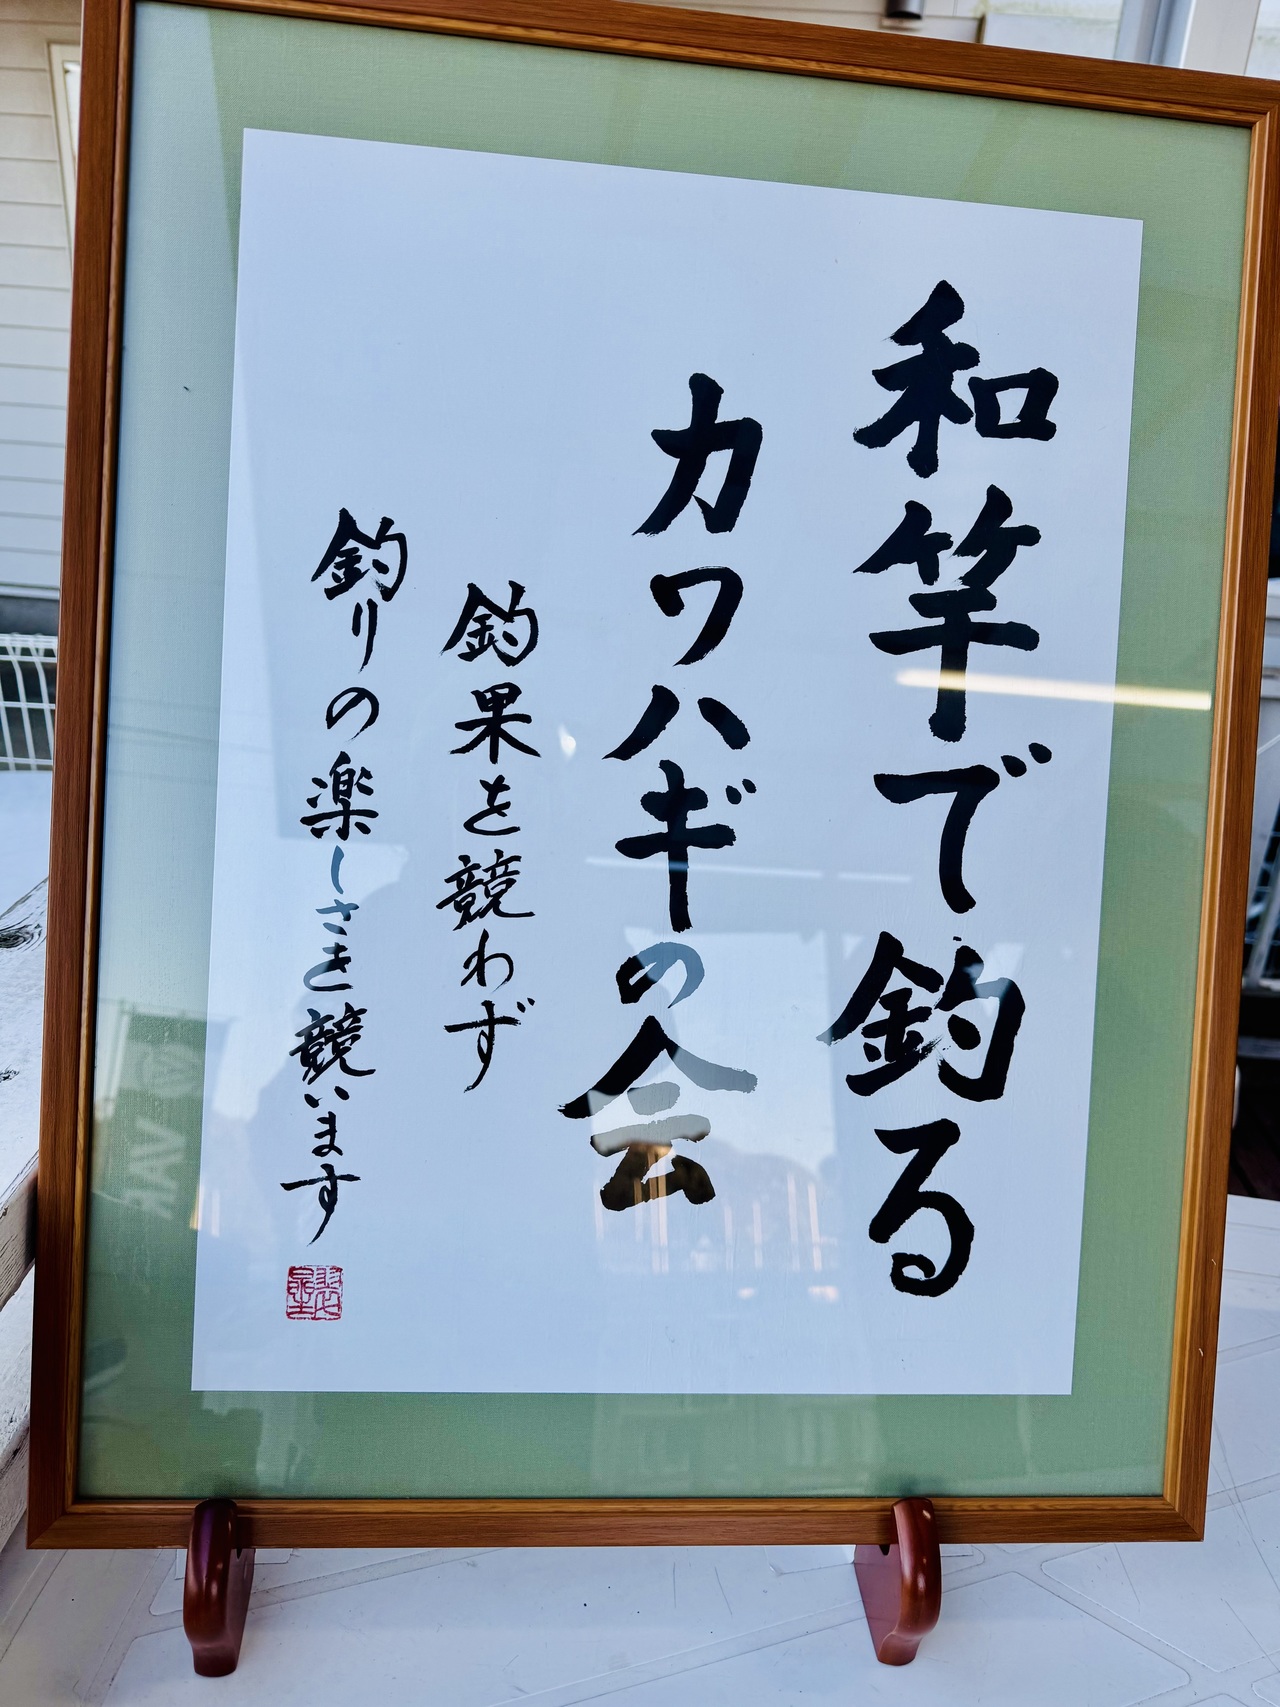 和竿で釣る
カワハギの会
釣果を競わず
釣りの楽しさを競います